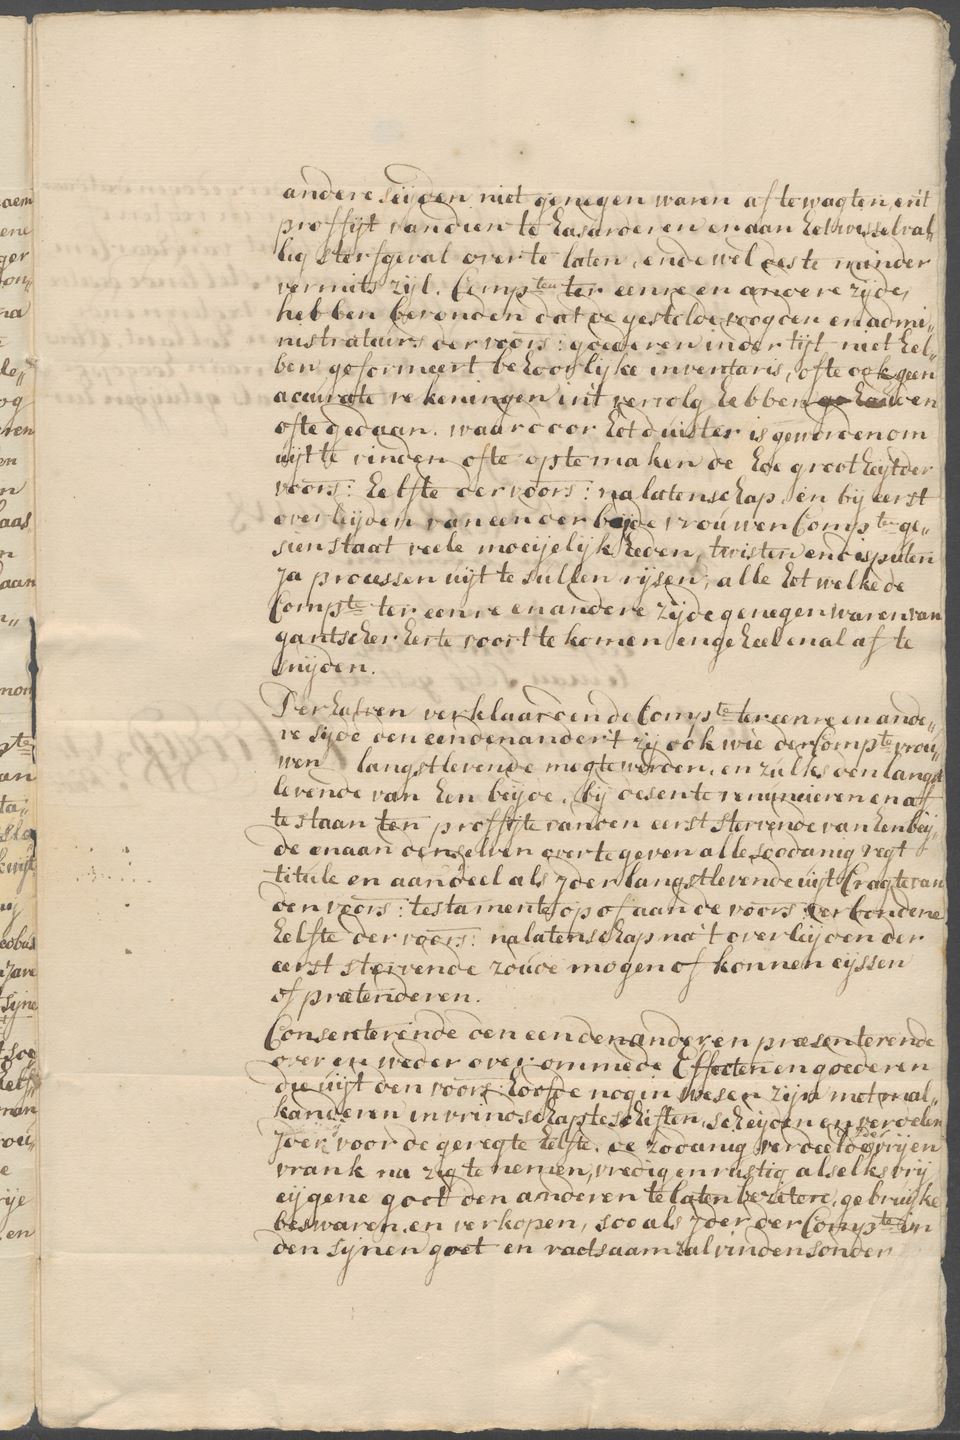 andere seijden niet genegen waren af te wagten, en 't
proffijt van dien te hasarderen en aan het wisselval„
lig sterfgeval over te laten, ende wel des te minder
vermits zijl. Comp.ten ter eenre en andere zijde,
hebben bevonden dat de gestelde voogden en admi„
nistrateurs der voors: goederen inder tijt niet heb„
ben geformeert behoorlijke inventaris, ofte ook geen
accurate rekeningen in 't vervolg hebben gehouden
ofte gedaan. waar door het duister is geworden om
uijt te vinden ofte op te maken de hoe grootheijt der
voors: helfte der voors: nalatenschap. en bij eerst
overleijden van een der beijde vrouwen Comp.te ge„
sien staat veele moeijelijkheden, twisten en disputen
Ja processen uijt te sullen rijsen, alle het welke de
Comp.te ter eenre en andere zijde genegen waren van
gantscher herte voort te komen en geheel en al af te
snijden.
Derhalven verklaarden de Comp.te ter eenre en ande„
re sijde den een den ander 't zij ook wie der Comp.te vrou„
wen langstlevende mogte werden, en zulks den langst
levende van hen beijde, bij desen te renuncieren en af
te staan ten proffijte van den eerst stervende van hen beij„
de en aan denselven over te geven alle soodanig regt
titule en aandeel als jder langstlevende uijt Cragte van
den voors: testamente op of aan de voors: verbondene
helfte der voors: nalatenschap na 't overleijden der
eerst stervende zoude mogen of konnen eijssen
of prætenderen.
Consenterende den een den ander en præsenterende
over en weder over ommede Effecten en goederen
die uijt den voors: hoofde nog in wesen zijn met mal„
kanderen in vrindschap te schiften, scheijden en verdelen
Jder voor de geregte helfte. de zodanig verdeelde vrij en
vrank na zig te nemen, vredig en rustig als elks vrij
eijgene goet den anderen te laten bezitten, gebruijke
beswaren en verkopen, soo als jder der Comp.te in
den sijnen goet en raadsaam zal vinden sonder